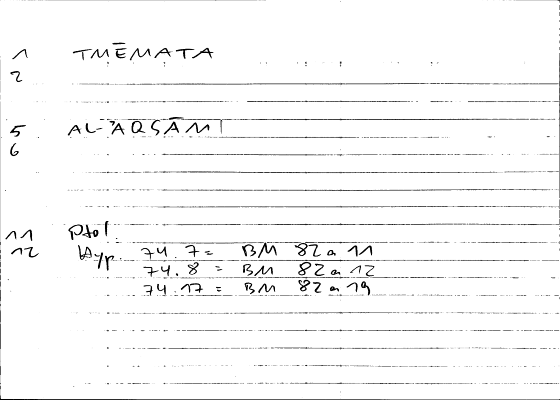 1 TMĒMATA
2
5 AL-ʾAQSĀM
6
11 Ptol.
12 Hyp. 74.7 = BM 82a 11
74.8 = BM 82a 12
74.17 = BM 82a 19